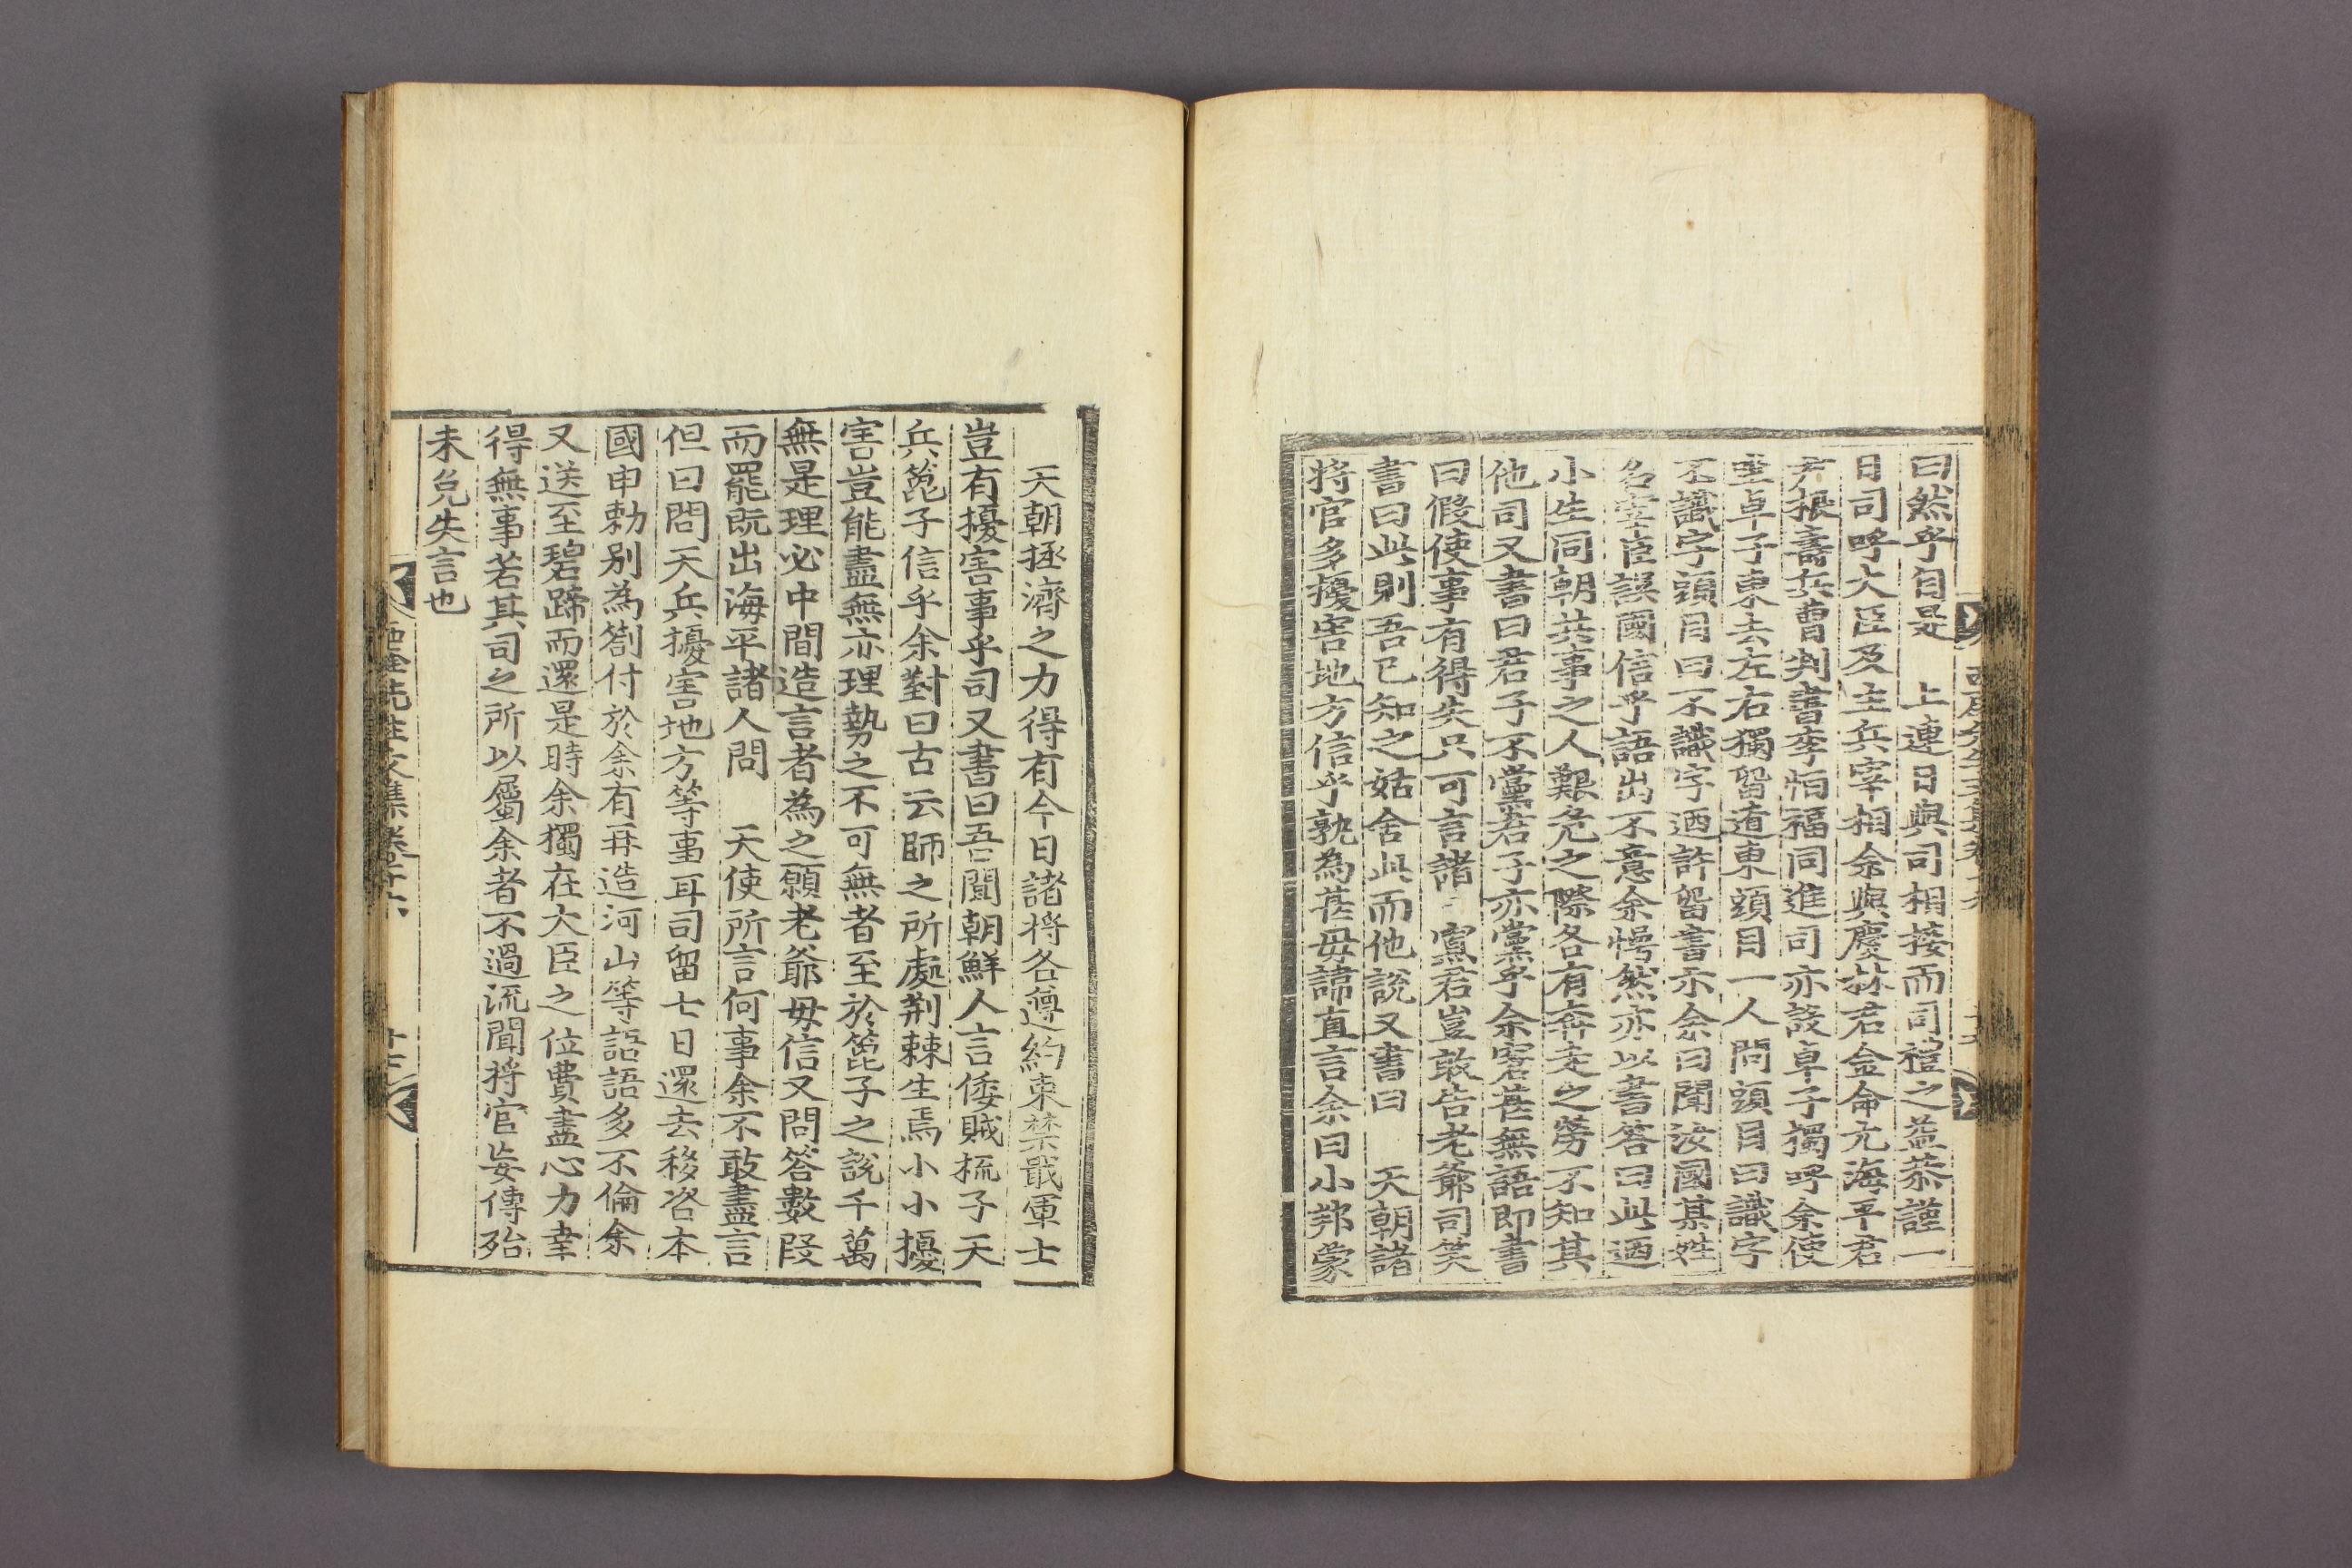 曰然乎自是　上連日與司相接而司禮之益恭謹一
日司呼大臣及主兵宰相余與慶林君金命元海平君
尹根壽兵曹判書李恒福同進司亦設卓子獨呼余使
坐卓子東去左右獨留道東頭目一人問頭目曰識字
不識字頭目曰不識字迺許留書示余曰聞汝國某姓
名宰臣誤國信乎語出不意余愕然亦以書答曰此迺
小生同朝共事之人艱危之際各有奔走之勞不知其
他司又書曰君子不黨君子亦黨乎余窘甚無語即書
曰假使事有得失只可言諸　寡君豈敢告老爺司笑
書曰此則吾已知之姑舍此而他說又書曰　天朝諸
將官多擾害地方信乎孰為甚毋諱直言余曰小邦蒙
天朝拯濟之力得有今日諸將各遵約束禁戢軍士
豈有擾害事乎司又書曰吾聞朝鮮人言倭賊梳子天
兵篦子信乎余對曰古云師之所處荊棘生焉小小擾
害豈能盡無亦理勢之不可無者至於篦子之說千萬
無是理必中間造言者為之願老爺毋信又問答數段
而罷既出海平諸人問　天使所言何事余不敢盡言
但曰問天兵擾害地方等事耳司留七日還去移咨本
國申勅別為劄付於余有再造河山等語語多不倫余
又送至碧蹄而還是時余獨在大臣之位費盡心力幸
得無事若其司之所以屬余者不過流聞將官妄傳殆
未免失言也
西厓先生文集卷之十六